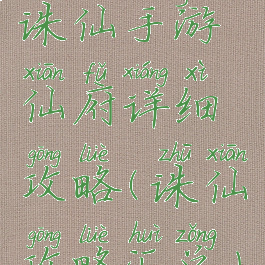 诛仙手游
xiān fǔ xiáng xì
仙府详细
gōng lüè zhū xiān
攻略(诛仙
gōng lüè huì zǒng
攻略汇总)